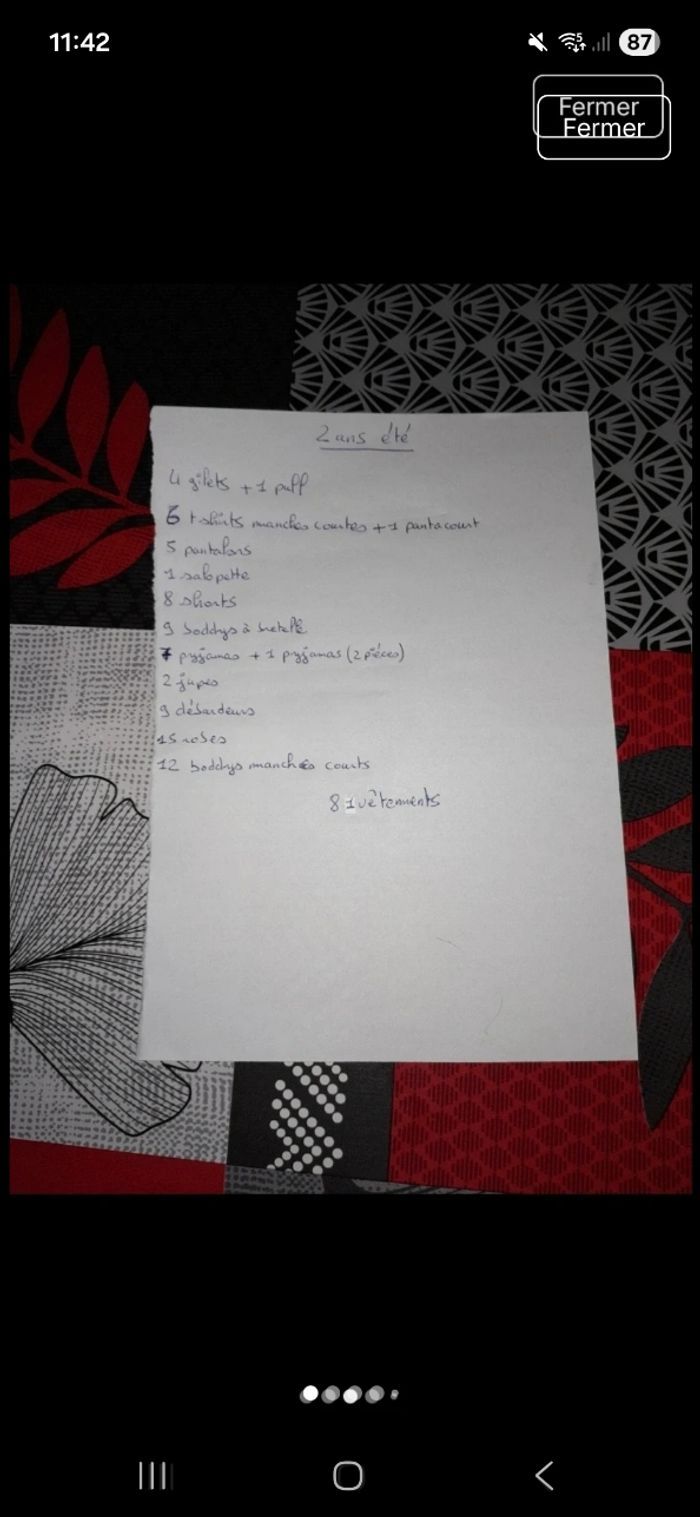 11:42
87
Fermer
Fermer
2 ans été
4 gilets + 1 pull
6 t-shirts manches courtes + 1 pantacourt
5 pantalons
1 salopette
8 shorts
9 boddys à bretelle
7 pyjamas + 1 pyjamas (2 pièces)
2 jupes
9 débardeurs
15 robes
12 boddys manches courts
81 vêtements